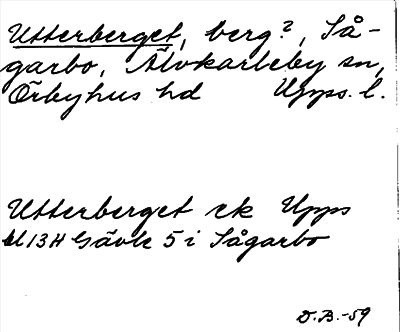 Utterberget, berg?, Så-
garbo, Älvkarleby sn,
Örbyhus hd Upps. l.
Utterberget ek Upps
bl 13H Gävle 5 i Sågarbo
D.B.-59